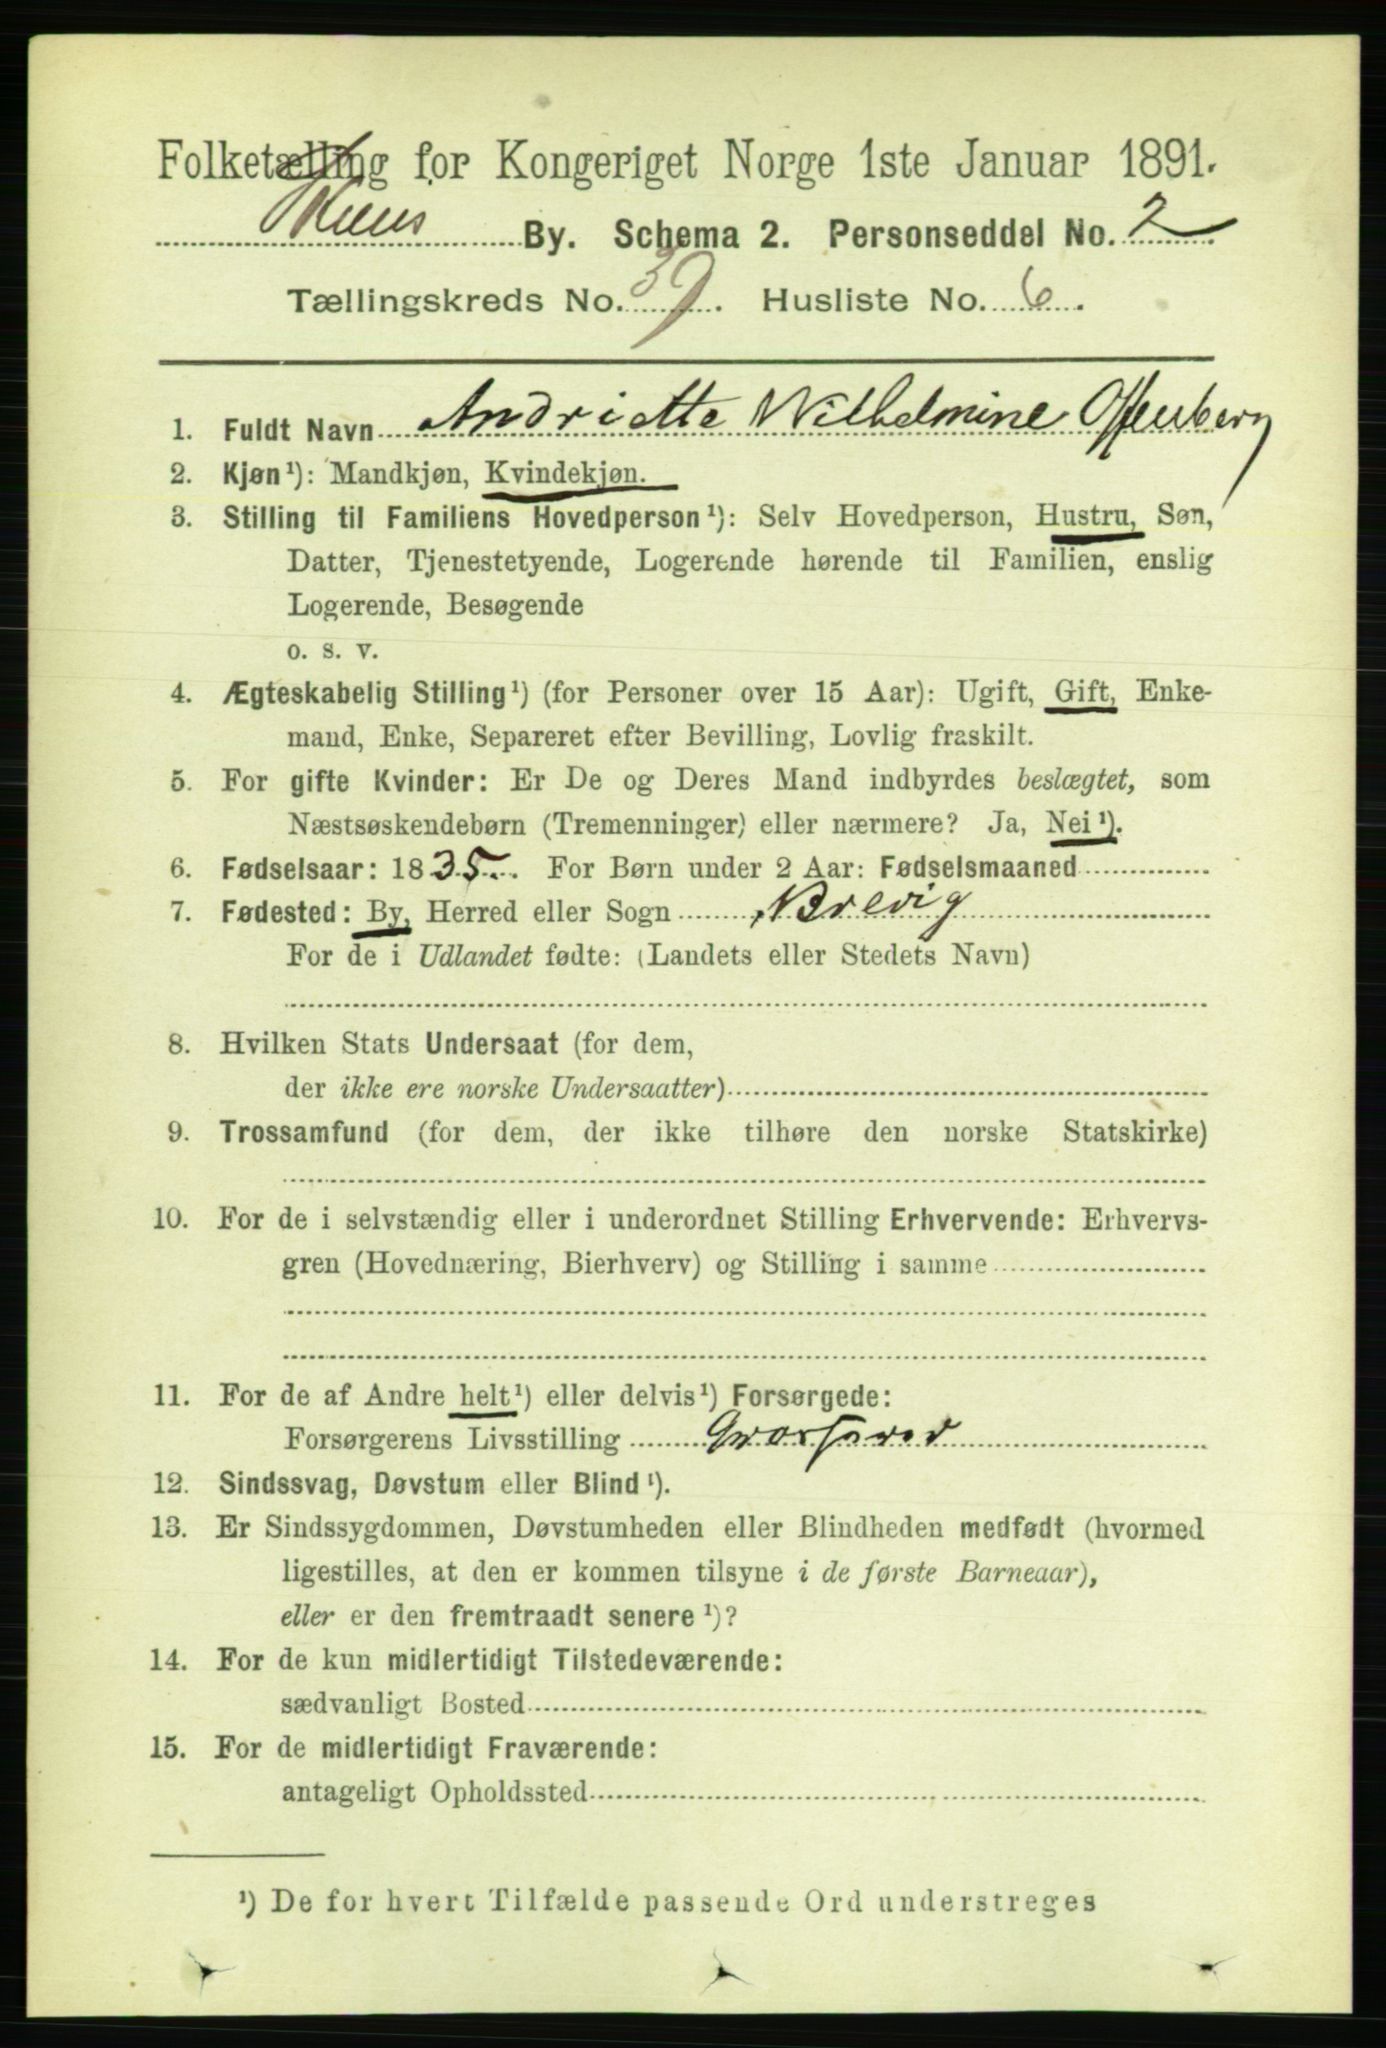 Folketælling for Kongeriget Norge 1ste Januar 1891.
Skiens By. Schema 2. Personseddel No. 2
Tællingskreds No. 39. Husliste No. 6.
1. Fuldt Navn Andriette Wilhelmine Offenberg
2. Kjøn¹): Mandkjøn, Kvindekjøn.
3. Stilling til Familiens Hovedperson¹): Selv Hovedperson, Hustru, Søn,
Datter, Tjenestetyende, Logerende hørende til Familien, enslig
Logerende, Besøgende
o. s. v.
4. Ægteskabelig Stilling¹) (for Personer over 15 Aar): Ugift, Gift, Enke-
mand, Enke, Separeret efter Bevilling, Lovlig fraskilt.
5. For gifte Kvinder: Er De og Deres Mand indbyrdes beslægtet, som
Næstsøskendebørn (Tremenninger) eller nærmere? Ja, Nei¹).
6. Fødselsaar: 1835. For Børn under 2 Aar: Fødselsmaaned
7. Fødested: By, Herred eller Sogn Brevig
For de i Udlandet fødte: (Landets eller Stedets Navn)
8. Hvilken Stats Undersaat (for dem,
der ikke ere norske Undersaatter)
9. Trossamfund (for dem, der ikke tilhøre den norske Statskirke)
10. For de i selvstændig eller i underordnet Stilling Erhvervende: Erhvervs-
gren (Hovednæring, Bierhverv) og Stilling i samme
11. For de af Andre helt¹) eller delvis¹) Forsørgede:
Forsørgerens Livsstilling
12. Sindssvag, Døvstum eller Blind¹).
13. Er Sindssygdommen, Døvstumheden eller Blindheden medfødt (hvormed
ligestilles, at den er kommen tilsyne i de første Barneaar),
eller er den fremtraadt senere¹)?
14. For de kun midlertidigt Tilstedeværende:
sædvanligt Bosted
15. For de midlertidigt Fraværende:
antageligt Opholdssted
¹) De for hvert Tilfælde passende Ord understreges